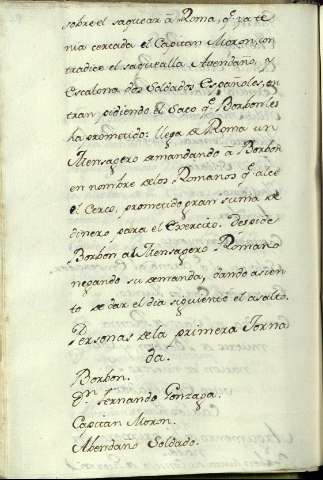 sobre el saquear á Roma, q.e ya te
nia cercada el Capitan Moron, con
tradice el saquealla Abendaño, y
Escalona dos Soldados Españoles, en
tran pidiendo el Saco q.e Borbon les
ha prometido: llega de Roma un
Mensagero demandando a Borbon
en nombre de los Romanos q.e alce
el Cerco, prometido gran suma de
dinero para el Exercito. despide
Borbon al Mensagero Romano
negando su demanda, dando asien
to de dar el dia siguiente el asalto.
Personas de la primera Jorna
da.
Borbon.
D.n Fernando Gonzaga.
Capitan Moron.
Abendaño Soldado.